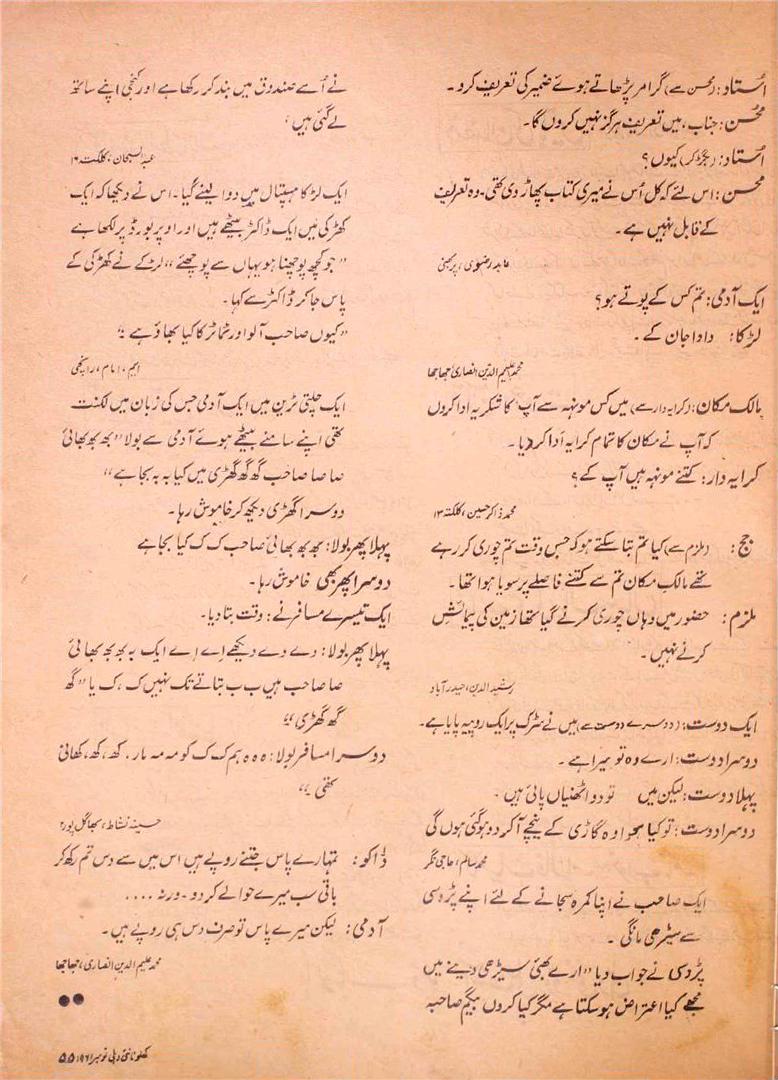 استاد: (محسن سے) گرامر پڑھاتے ہوئے ضمیر کی تعریف کرو۔
محسن: جناب، میں تعریف ہرگز نہیں کروں گا۔
استاد: (بگڑ کر) کیوں؟
محسن: اس لئے کہ کل اُس نے میری کتاب پھاڑ دی تھی۔ وہ تعریف
کے قابل نہیں ہے۔
عابد رضوی، پربھنی
ایک آدمی: تم کس کے پوتے ہو؟
لڑکا: دادا جان کے۔
محمد علیم الدین انصاری جھاجھا
مالک مکان: (کرایہ دار سے) میں کس مونہہ سے آپ کا شکریہ ادا کروں
کہ آپ نے مکان کا تمام کرایہ ادا کر دیا۔
کرایہ دار: کتنے مونہہ ہیں آپ کے؟
محمد ذاکر حسین، کلکتہ ۱۳
جج: (ملزم سے) کیا تم بتا سکتے ہو کہ جس وقت تم چوری کر رہے
تھے مالک مکان تم سے کتنے فاصلے پر سویا ہوا تھا۔
ملزم: حضور میں وہاں چوری کرنے گیا تھا زمین کی پیمائش
کرنے نہیں۔
رشید الدین، حیدرآباد
ایک دوست: (دوسرے دوست سے) میں نے سڑک پر ایک روپیہ پایا ہے۔
دوسرا دوست: ارے وہ تو میرا ہے۔
پہلا دوست: لیکن میں تو دو اٹھنیاں پائی ہیں۔
دوسرا دوست: تو کیا ہوا وہ گاڑی کے نیچے آکر دو ہو گئی ہوں گی
محمد سالم، حاجی نگر
ایک صاحب نے اپنا کمرہ سجانے کے لئے اپنے پڑوسی
سے سیڑھی مانگی۔
پڑوسی نے جواب دیا "ارے بھئی سیڑھی دینے میں
مجھے کیا اعتراض ہو سکتا ہے مگر کیا کروں بیگم صاحبہ
نے اُسے صندوق میں بند کر رکھا ہے اور کنجی اپنے ساتھ
لے گئی ہیں"
عبدالسبحان، کلکتہ ۱۶
ایک لڑکا ہسپتال میں دوا لینے گیا۔ اس نے دیکھا کہ ایک
کھڑکی میں ایک ڈاکٹر بیٹھے ہیں اور اوپر بورڈ پر لکھا ہے
"جو کچھ پوچھنا ہو یہاں سے پوچھئے" لڑکے نے کھڑکی کے
پاس جا کر ڈاکٹر سے کہا۔
"کیوں صاحب آلو اور ٹماٹر کا کیا بھاؤ ہے"
ایم، امام، رانچی
ایک چلتی ٹرین میں ایک آدمی جس کی زبان میں لکنت
تھی اپنے سامنے بیٹھے ہوئے آدمی سے بولا "بھ بھ بھائی
صا صا صاحب گھ گھ گھڑی میں کیا بہ بہ بجا ہے"
دوسرا گھڑی دیکھ کر خاموش رہا۔
پہلا پھر بولا: بھ بھ بھائی صاحب ک ک کیا بجا ہے
دوسرا پھر بھی خاموش رہا۔
ایک تیسرے مسافر نے: وقت بتا دیا۔
پہلا پھر بولا: دے دے دیکھے اے اے ایک بہ بھ بھ بھائی
صا صاحب ہیں ب ب بتاتے تک نہیں ک، ک یا "گھ
گھ گھڑی"
دوسرا مسافر بولا: ہ ہ ہ ہم ک ک کو مہ مہ مار، کھ، کھ، کھانی
تھی"
حسینہ نشاط، بھاگل پور ۲
ڈاکو: تمہارے پاس جتنے روپے ہیں اس میں سے دس تم رکھ کر
باقی سب میرے حوالے کر دو۔ ورنہ ....
آدمی: لیکن میرے پاس تو صرف دس ہی روپے ہیں۔
محمد علیم الدین انصاری، جھاجھا
کھلونا نئی دہلی نومبر ۱۹۶۱ ۵۵